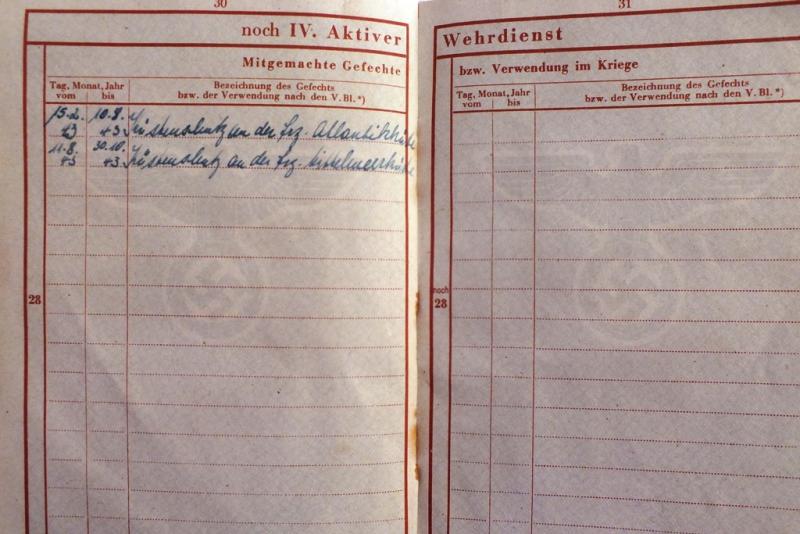 30
noch IV. Aktiver
Mitgemachte Gefechte
Tag, Monat, Jahr
vom bis
Bezeichnung des Gefechts
bzw. der Verwendung nach den V. Bl. *)
15.2. 10.8.
43 43 Küstenschutz an der frz. Atlantikküste
11.8. 30.10.
43 43 Küstenschutz an der frz. Mittelmeerküste
28
31
Wehrdienst
bzw. Verwendung im Kriege
Tag, Monat, Jahr
vom bis
Bezeichnung des Gefechts
bzw. der Verwendung nach den V. Bl. *)
noch
28